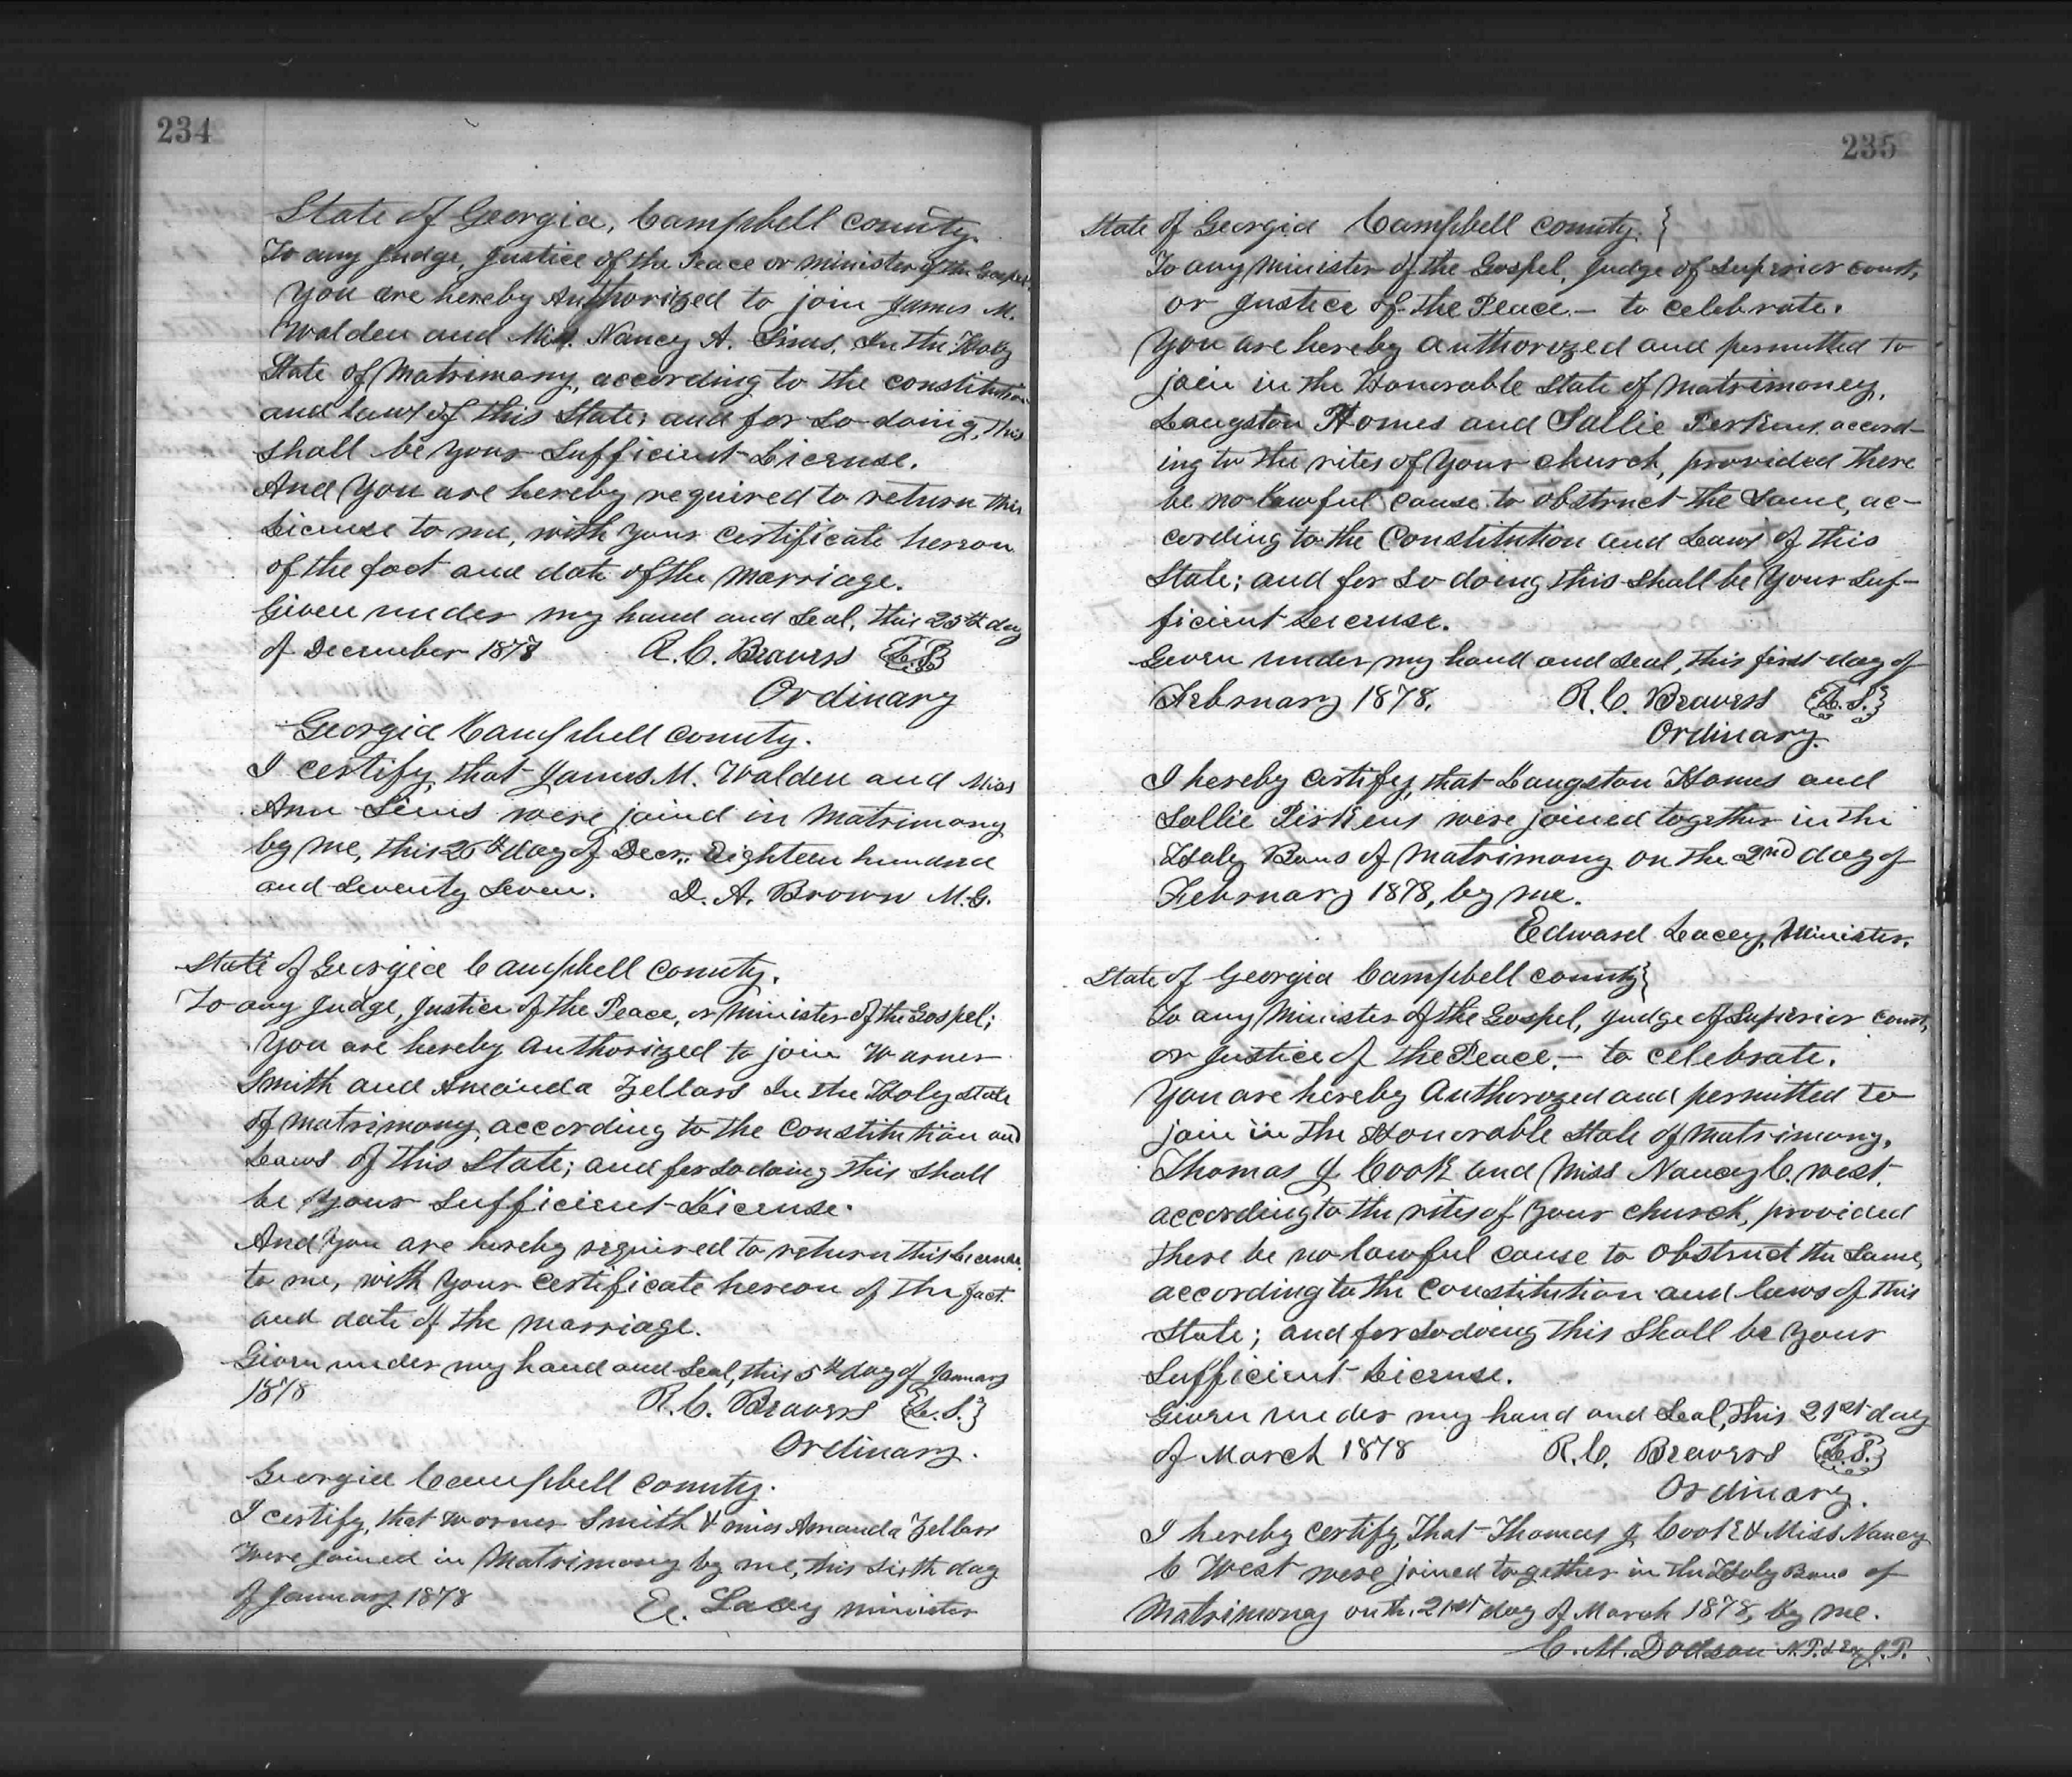 234
State of Georgia, Campbell county.
To any Judge, Justice of the Peace or minister of the Gospel,
You are hereby Authorized to join James M.
Walden and Miss. Nancy A. Sims, In the Holy
State of Matrimony, according to the constitution
and laws of this State; and for so doing, this
shall be your Sufficient License.
And You are hereby required to return this
License to me, with your certificate hereon
of the fact and date of the marriage.
Given under my hand and Seal, this 25th day
of December 1878 R. C. Beavers L.S.
Ordinary
Georgia Campbell county.
I certify, that James M. Walden and Miss
Ann Sims were joind in Matrimony
by me, this 26th day of Decr. Eighteen hundred
and Seventy Seven. D. A. Brown M.G.
State of Georgia Campbell County.
To any Judge, Justice of the Peace, or Minister of the Gospel;
You are hereby Authorized to join Warner
Smith and Amanda Zellars In the Holy State
of Matrimony, according to the Constitution and
Laws of this State; and for so doing this shall
be your Sufficient License.
And You are hereby required to return this License
to me, with your certificate hereon of the fact
and date of the marriage.
Given under my hand and Seal, this 5th day of January
1878 R. C. Beavers {L.S.}
Ordinary.
Georgia Campbell County.
I certify, that Warner Smith & miss Amanda Zellars
Were joined in Matrimony by me, this Sixth day
of January 1878 Ed. Lacey minister
235
State of Georgia Campbell county. }
To any Minister of the Gospel, Judge of Superior court,
or Justice of the Peace. — to celebrate.
You are hereby authorized and permitted to
join in the Honorable State of Matrimoney,
Langston Homes and Sallie Perkens, accord-
ing to the rites of your church, provided there
be no lawful cause to obstruct the Same, ac-
cording to the Constitution and Laws of this
State; and for so doing this shall be Your Suf-
ficient License.
Given under my hand and seal, this first day of
February 1878. R. C. Beavers {L.S.}
Ordinary.
I hereby certify, that Langston Homes and
Sallie Pirkens were joined together in thi
Holy Bans of Matrimony on the 2nd day of
February 1878, by me.
Edward Lacey, Minister.
State of Georgia Campbell county}
To any Minister of the Gospel, Judge of Superior Court,
or Justice of the Peace. — to celebrate.
You are hereby Authorized and permitted to
join in the Honorable State of Matrimony,
Thomas J. Cook and Miss Nancy C. West.
according to the rites of your church, provided
there be no lawful cause to obstruct the Same,
according to the Constitution and laws of this
State; and for so doing this Shall be Your
Sufficient License.
Given under my hand and Seal, this 21st day
of March 1878 R. C. Beavers {L.S.}
Ordinary.
I hereby certify, That Thomas J. Cook & Miss Nancy
C West were joined together in the Holy Bans of
Matrimoney on th. 21st day of March 1878, by me.
C. M. Dodson N.P. & Ex J.P.